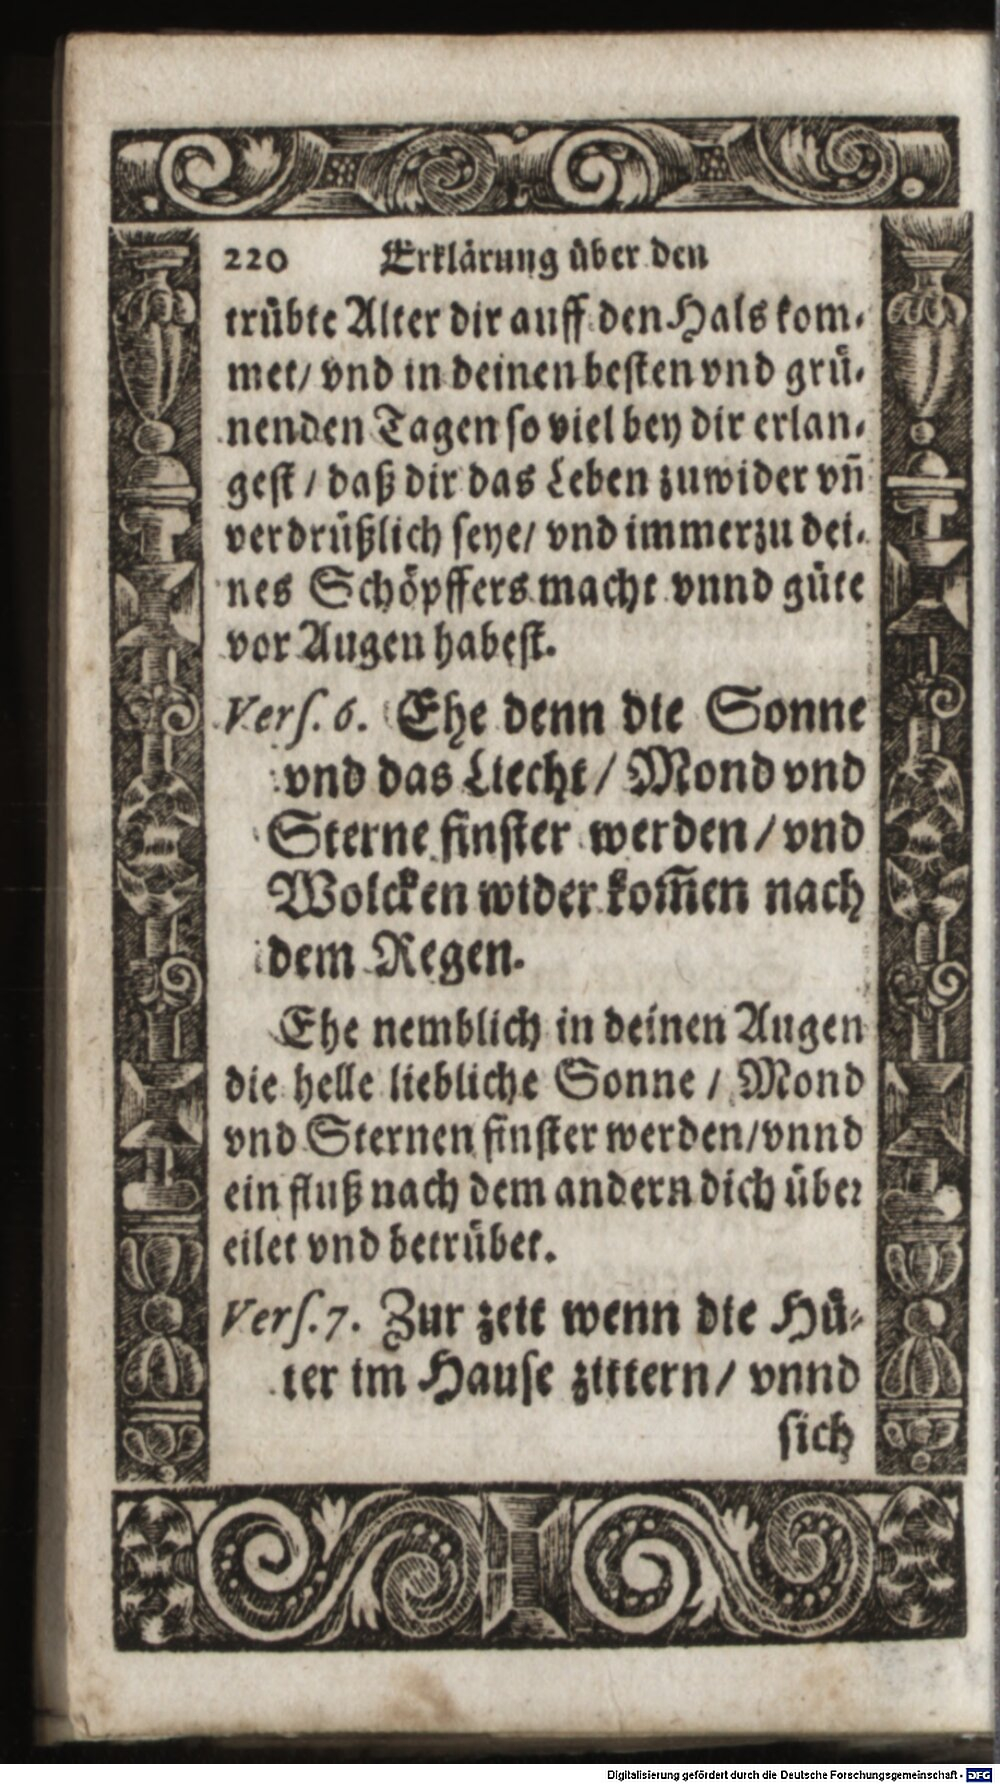 220 Erklärung über den
trübte Alter dir auff den Hals kom-
met/ vnd in deinen besten vnd grü-
nenden Tagen so viel bey dir erlan-
gest / daß dir das Leben zuwider vñ
verdrüßlich seye/ vnd immerzu dei-
nes Schöpffers macht vnnd güte
vor Augen habest.
Vers. 6. Ehe denn die Sonne
vnd das Liecht / Mond vnd
Sterne finster werden / vnd
Wolcken wider kom̃en nach
dem Regen.
Ehe nemblich in deinen Augen
die helle liebliche Sonne / Mond
vnd Sternen finster werden/vnnd
ein fluß nach dem andern dich über
eilet vnd betrübet.
Vers. 7. Zur zeit wenn die Hü-
ter im Hause zittern / vnnd
sich
Digitalisierung gefördert durch die Deutsche Forschungsgemeinschaft - DFG